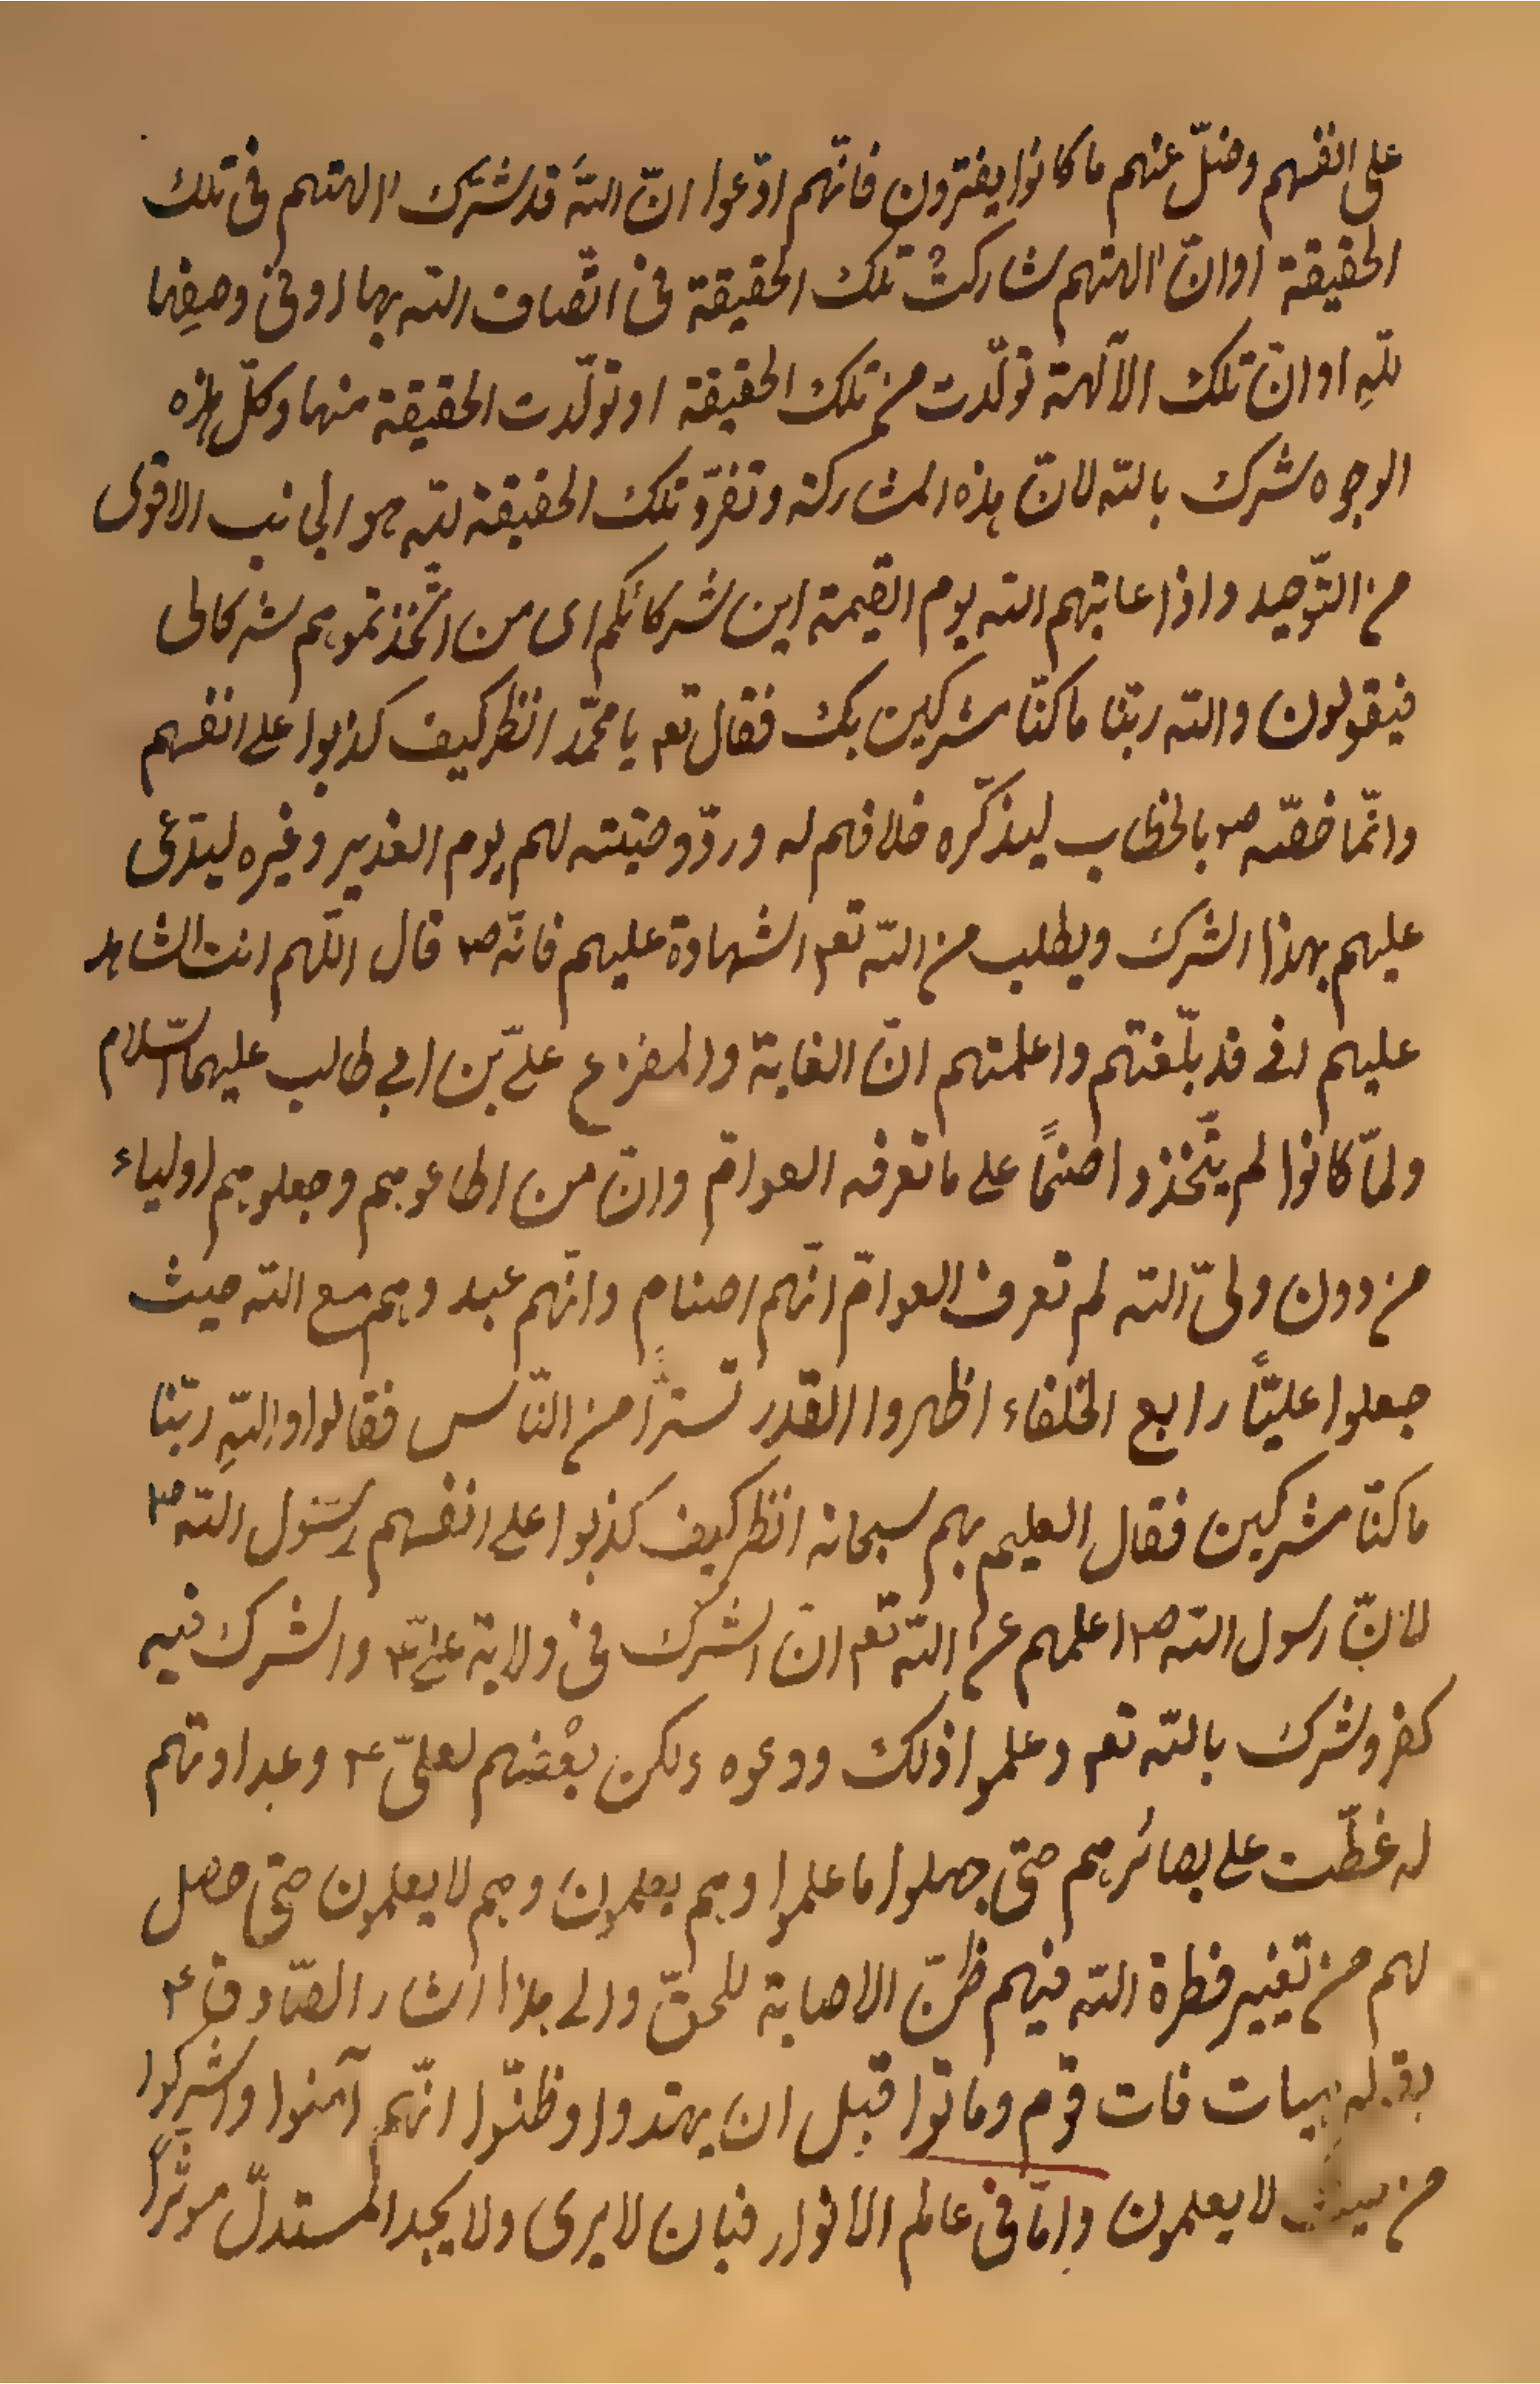 على انفسهم وضلّ عنهم ما كانوا يفترون فانّهم ادّعوا انّ اللهَ قد شرّك الهتهم فى تلك
الحقيقة اوانّ الهتهم شاركتْ تلك الحقيقة فى اتّصاف الله بها او فى وصفِها
للهِ او انّ تلك الآلهة تولّدت من تلك الحقيقة او تولّدت الحقيقة منها وكلّ هذه
الوجوه شرك بالله لانّ هذه المشاركة وتفرّد تلك الحقيقة لله هو الجانب الاقوى
من التّوحيد واذا عاتبهم الله يوم القيمة اين شركائكم اى من اتّخذتموهم شركائى
فيقولون والله ربّنا ما كنّا مشركين بك فقال تعم يا محمّد انظر كيف كذبوا على انفسهم
وانّما خصّه ص بالخطاب ليذكّره خلافهم له وردّ وصيّته لهم يوم الغدير وغيره ليدّعى
عليهم بهذا الشرك ويطلب من الله تعم الشهادة عليهم فانّه ص قال اللّهم انت الشاهد
عليهم انى قد بلّغتهم واعلمتهم انّ الغاية والمفزع علىّ بن ابى طالب عليهما السّلام
ولمّا كانوا لم يتّخذوا صنمًا على ما تعرفه العوامّ وانّ من اطاعوهم وجعلوهم اولياء
من دون ولىّ الله لم تعرف العوامّ انّهم اصنام وانّهم عبدوهم مع الله حيث
جعلوا عليّاً رابع الخلفاء اظهروا القدر تستّراً من النّاس فقالوا واللهِ ربّنا
ما كنّا مشركين فقال العليم بهم سبحانه انظر كيف كذبوا على انفسهم رسول الله ص
لانّ رسول الله ص اعلمهم عن الله تعم انّ الشرك فى ولاية علىّ ع والشرك فيه
كفر وشرك بالله تعم وعلموا ذلك ووعوه ولكن بغْضهم لعلىّ ع وعداوتهم
له غطّت على بصائرهم حتى جهلوا ما علموا وهم يعلمون وهم لا يعلمون حتى حصل
لهم من تغيير فطرة الله فيهم ظنّ الاصابة للحقّ والى هذا اشار الصّادق ع
بقوله هيهات فات قوم وماتوا قبل ان يهتدوا وظنّوا انّهم آمنوا واشركوا
من حيث لا يعلمون وامّا فى عالم الانوار فبان لا يرى ولا يجد المستدلّ مؤثّراً